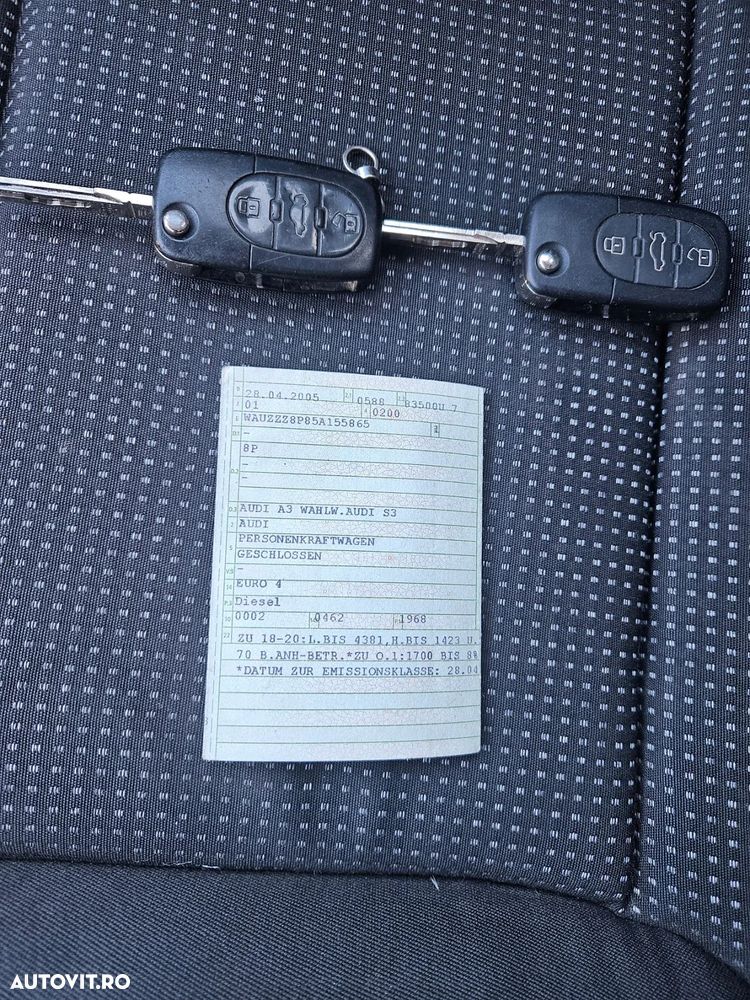 B 28.04.2005 2.1 0588 2.2 83500U 7
J 01 4 0200
E WAUZZZ8P85A155865 3
D.1 -
8P
D.2 -
-
D.3 AUDI A3 WAHLW.AUDI S3
2 AUDI
5 PERSONENKRAFTWAGEN
GESCHLOSSEN
V.9 -
14 EURO 4
P.3 Diesel
10 0002 0462 1968
22 ZU 18-20:L.BIS 4381,H.BIS 1423 U.
70 B.ANH-BETR.*ZU O.1:1700 BIS 8%
*DATUM ZUR EMISSIONSKLASSE: 28.04
AUTOVIT.RO